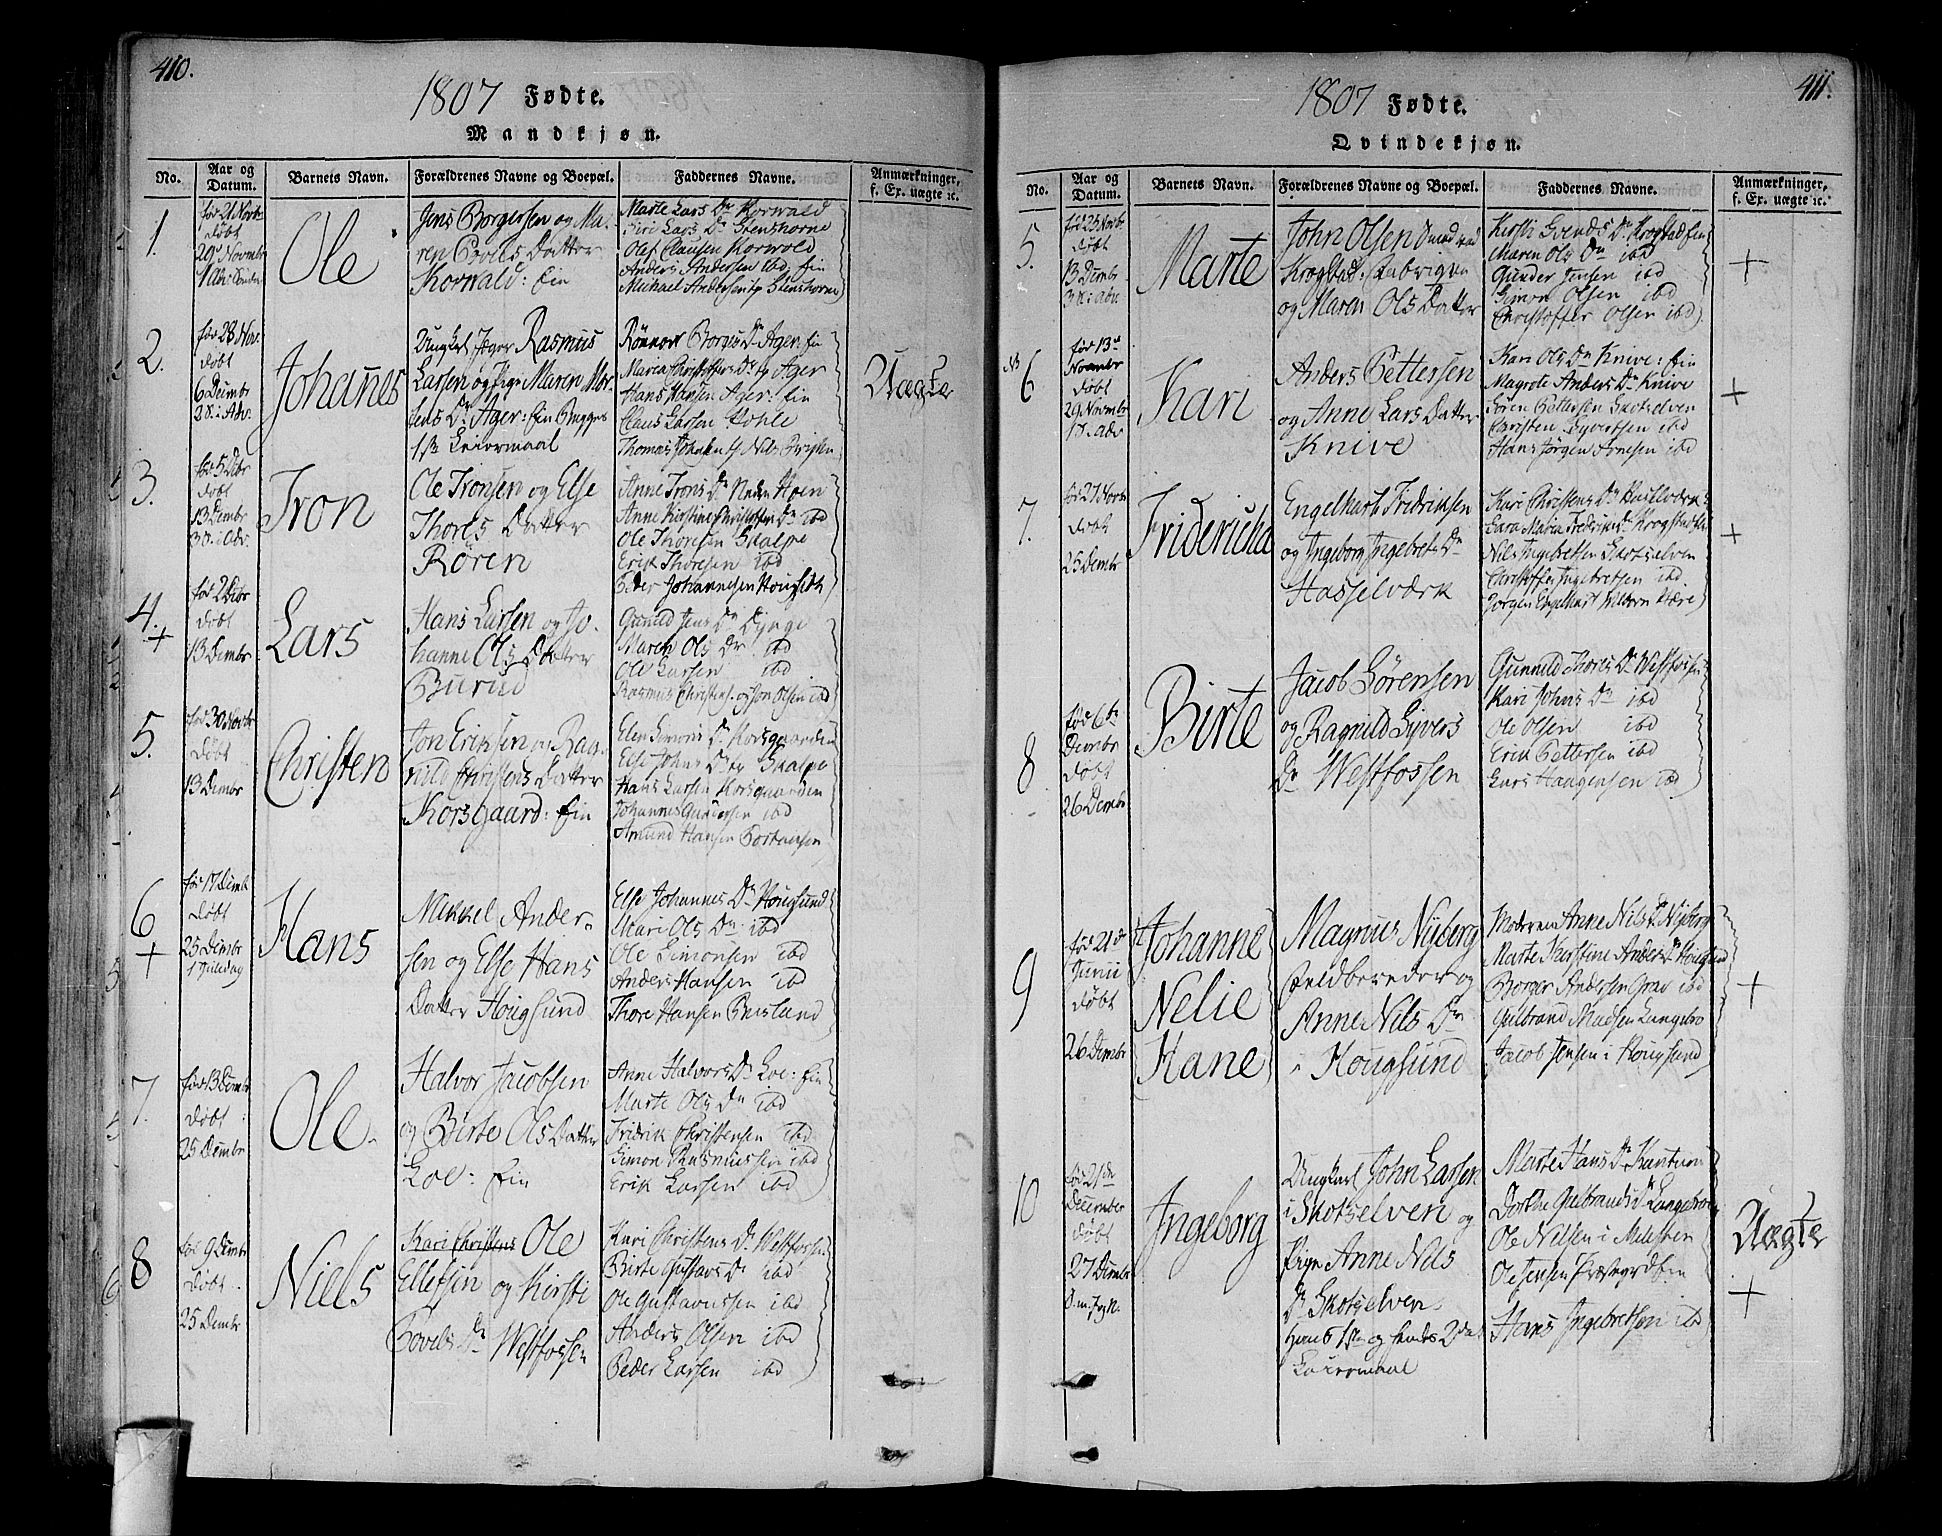 410.
1807 Fødte.
Mandkjøn.
No.
Aar og Datum.
Barnets Navn.
Forældrenes Navne og Boepæl.
Faddernes Navne.
Anmærkninger, f. Ex. uægte ic.
1.
fød 21 Novbr
døbt
29de Novembr
Ole
Jens Borgersen og Ma-
ren Povels Datter
Korvald: Ein
Marte Lars Dr Korwald
Siri Lars Dr Stenshorne
Olef Clausen Korvold
Anders Andersen ibd. Ein
Michael Andersen Stenshorne
2.
fød 28 Nov.
døbt
6 Decembr
2 S. i Adv.
Johannes
Ungkel Jeger Rasmus
Larsen og Pige Maren Mor-
tens Dr Ager: Ein Begges
1ste Leiermaal
Rønnov Borges Dr Ager: Ein
Maria Christoffers Dr Ager
Hans Hansen Ager: Ein
Claus Larsen Hohle
Uægte
3.
fød 5 Dcbr
døbt
13 Decembr
3 S. i Adv.
Tron
Ole Tronsen og Else
Thores Datter
Røren
Anne Trons Dr Neden Hoen
Anne Kirstine Christoffer Dr ibd
Ole Thoresen Skalpe
Erik Thoresen ibd
Peder Johannesen
4.
+
fød 2 Dcbr
døbt
13 Decembr
Lars
Hans Larsen og Jo-
hanne Ols Datter
Burud
Gunnild Jens Dr Dynge
Maren Ols Dr ibd
Ole Larsen ibd
Rasmus Christens. og Jon Olsen ibd
5.
fød 30 Novbr
døbt
13 Decembr
Christen
Jon Eriksen og Rag-
nild Christens Datter
Korsgaard: Ein
Elen Simons Dr Korsgaarden
Else Johns Dr Skalpe
Hans Larsen Korsgaarden
Johannes Gundersen ibd
Amund Hansen
6
+
fød 17 Decemb
døbt
25 Decembr
1 Juledag
Hans
Mikkel Ander-
sen og Else Hans
Datter Hougsund
Else Johannes Dr Hougsund
Mari Ols Dr ibd
Ole Simonsen ibd
Anders Hansen ibd
Thore Hansen
7.
fød 13 Decembr
døbt
25 Decembr
Ole
Halvor Jacobsen
og Birte Ols Datter
Loe: Ein
Anne Halvors Dr Loe: Ein
Marte Ols Dr ibd
Fridrik Christensen ibd
Simon Rasmussen ibd
Erik Larsen ibd
8
fød 9 Decembr
døbt
25 Decembr
Niels
Kari Christens Ole
Ellefsen og Kirsti
Povels Dr Westfossen
Kari Christens Dr Westfossen
Birte Gustavs Dr ibd
Ole Gustavussen ibd
Anders Olsen ibd
Peder Larsen ibd
411.
1807 Fødte.
Qvindekjøn.
No.
Aar og Datum.
Barnets Navn.
Forældrenes Navne og Boepæl.
Faddernes Navne.
Anmærkninger, f. Ex. uægte ic.
5.
fød 25 Novbr
døbt
13 Decembr
3 S. i Adv.
Marte
John Olsen Smed ved
Krogstad Fabriqven
og Maren Ols Datter
Kirsti Svends Dr Krogstad Ein
Maren Ols Dr ibd
Gunder Jensen ibd
Simon Olsen ibd
Christoffer Olsen ibd
+
NB 6
fød 13de
Novembr
døbt
29 Novembr
1 S. i Adv
Kari
Anders Pettersen
og Anne Lars Datter
Knive
Kari Ols Dr Knive: Ein
Magrete Anders Dr Knive
Sören Pettersen Skotselven
Carsten Syvertsen ibd
Hans Jørgen Arnesen ibd
+
7.
fød 27 Novbr
døbt
25 Decembr
Fridericha
Engelhart Fredriksen
og Ingeborg Ingebrets Dr
Hasselværk
Kari Christens Dr Hasselværk
Sara Maria Fredriks Dr Krogstad Ein
Nils Ingebretsen Skotselven
Christoffer Ingebretsen ibd.
Jørgen Engelhart
+
8
fød 6te
Decembr
døbt
26 Decembr
Birte
Jacob Sørensen
og Ragnild Syvers
Dr Westfossen
Gunnild Thores Dr Westfossen
Kari Johns Dr ibd
Ole Olsen ibd
Erik Pettersen ibd
Lars Haagensen ibd
9
fød 21de
Junii
døbt
26 Decembr
Johanne
Nelie
Hane
Magnus Nyborg
Feldbereder og
Anne Nils Dr
i Hougsund
Moderen Anne Nils Dr Nyborg
Marte Kirstine Anders Dr Hougsund
Borger Andersen Grav ibd
Gulbrand Madsen Langebo
Jacob Jensen i Hougsund
+
10
fød 21de
December
døbt
27 Decembr
Ingeborg
Ungkarl John Larsen
i Skotselven og
Pige Anne Nils
Dr Skotselven.
Hans 1ste og hendes 2det
Leiermaal
Marte Hans Dr
Dorthe Gulbrands Dr Langebroen
Ole Nilsen i Mælsten
Ole Jensen Præstegrd Ein
Hans Ingebretsen ibd
Uægte
+